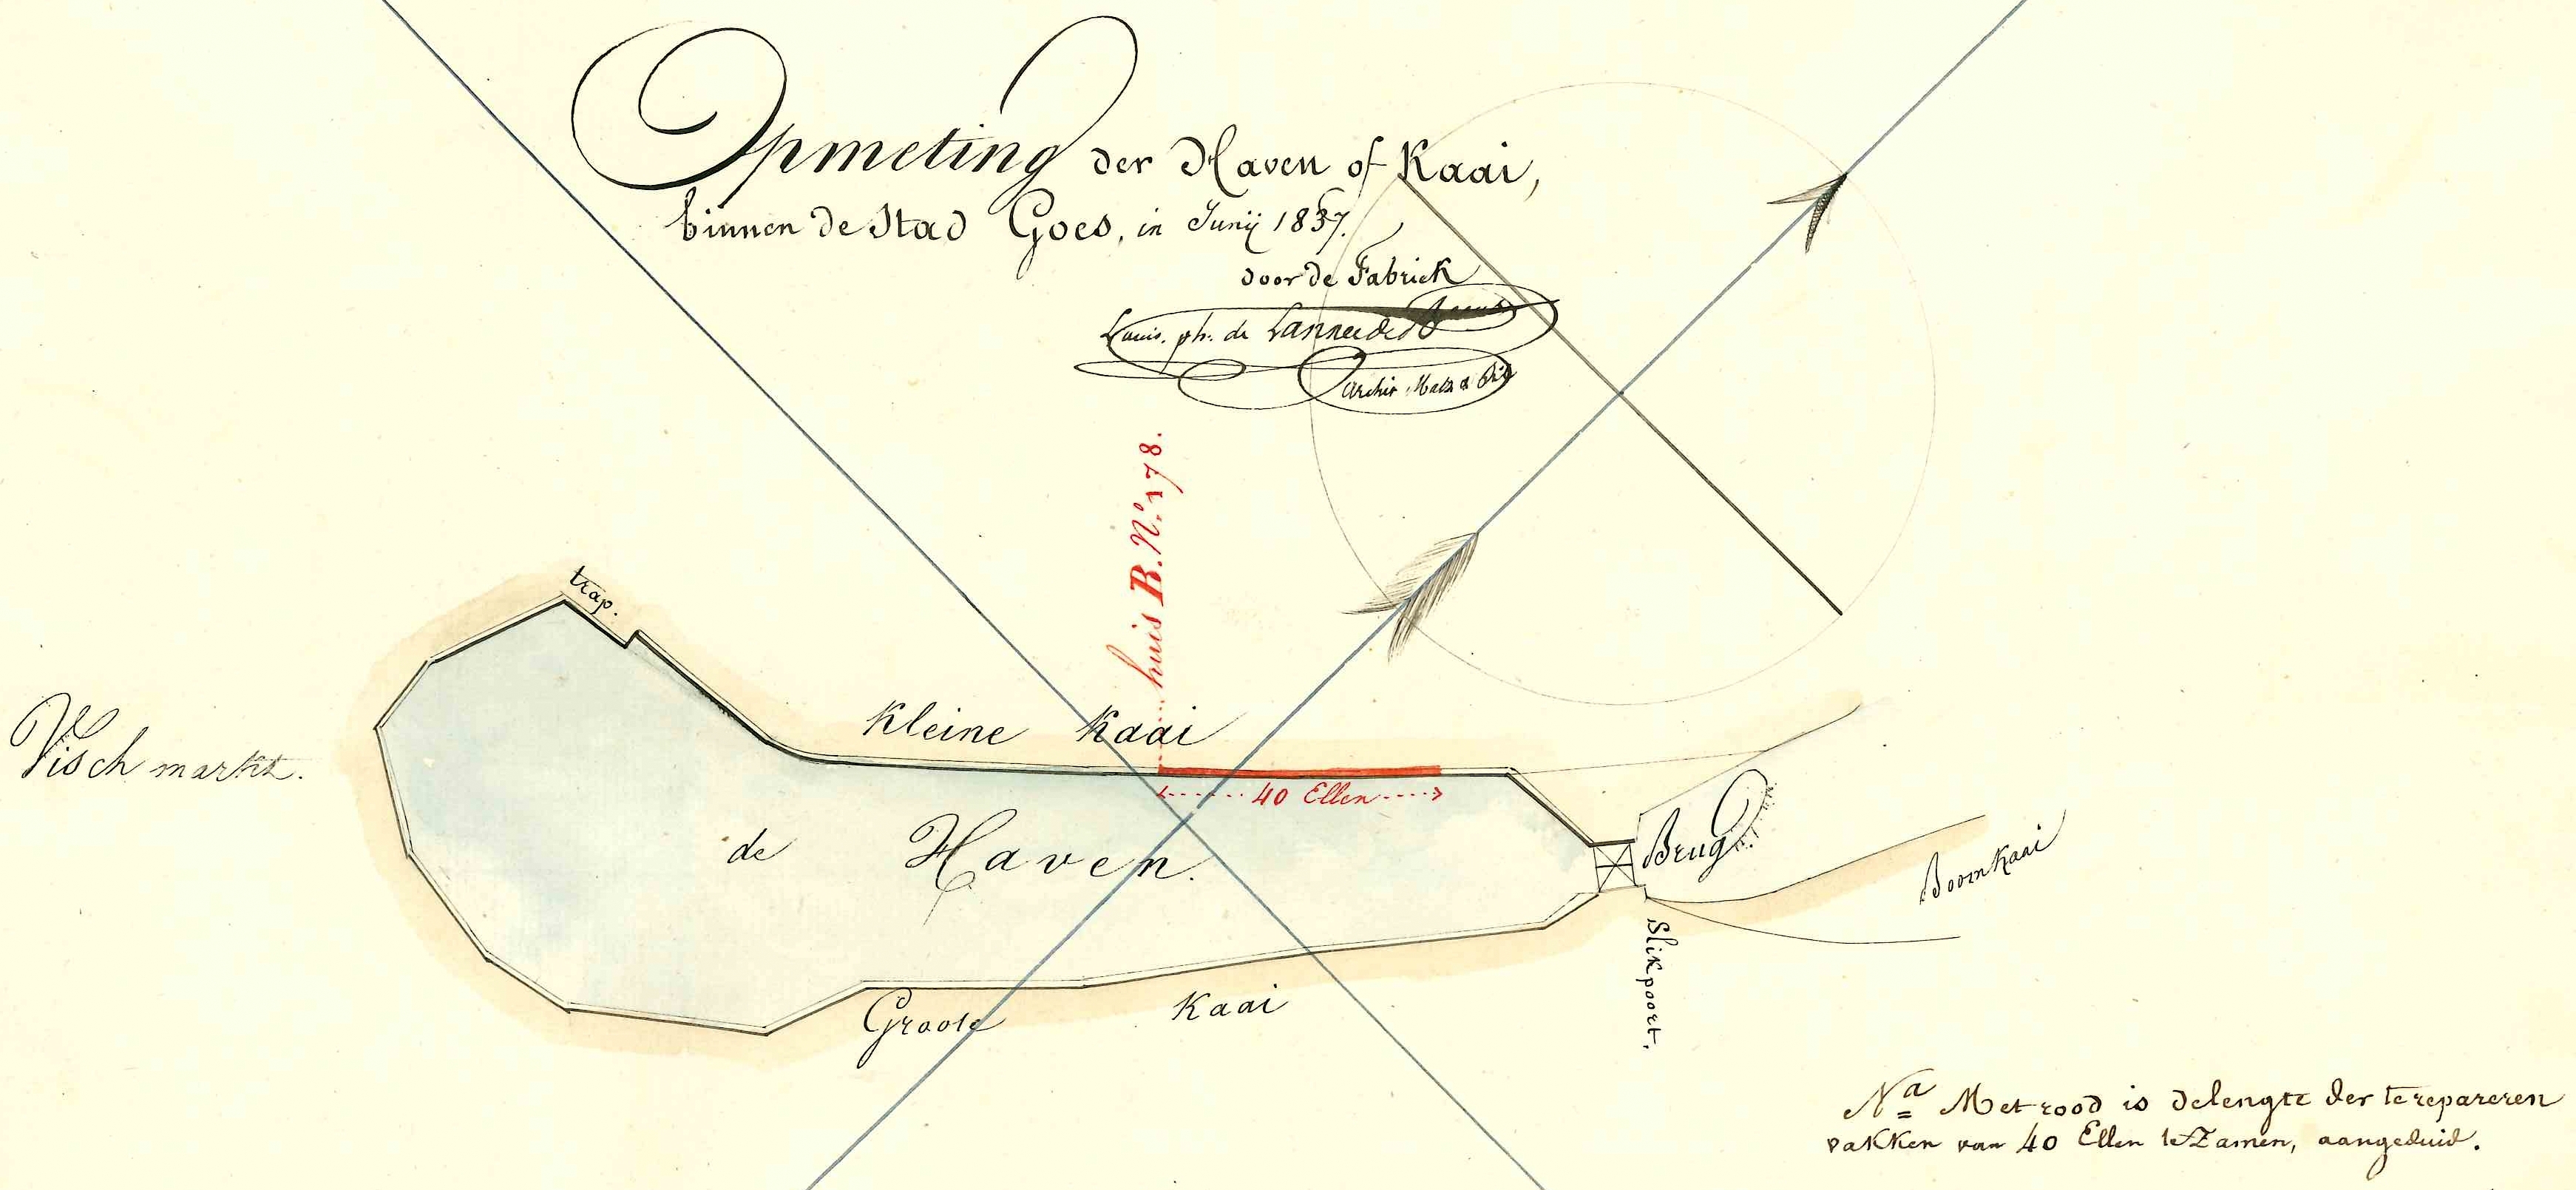 Opmeting der Haven of Kaai,
binnen de Stad Goes, in Junij 1837.
door de Fabriek
Louis. ph. de Lannee de
Archit
huis B. N.o 178.
trap.
Kleine Kaai
Visch markt.
40 Ellen
de Haven.
Brug
Boomkaai
Slikpoort.
Groote Kaai
Na Met rood is de lengte der te repareren
vakken van 40 Ellen te Zamen, aangeduid.